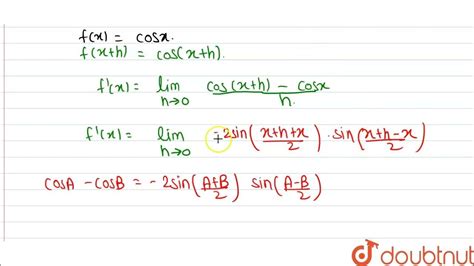 f(x) = cosx.
f(x+h) = cos(x+h).
f'(x) = lim h→0 cos(x+h) - cosx / h.
f'(x) = lim h→0 -2sin(x+h+x / 2) . sin(x+h-x / 2)
cosA - cosB = -2sin(A+B / 2) sin(A-B / 2)
doubtnut